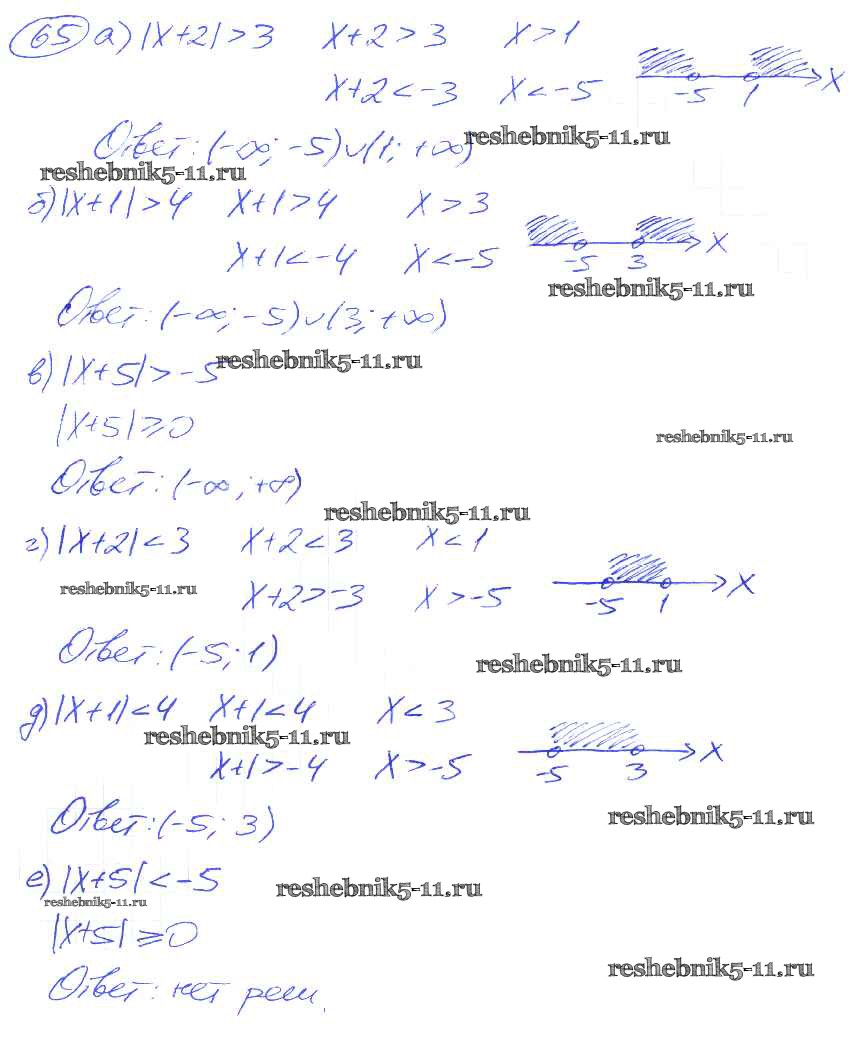 65 а) |x+2|>3 x+2>3 x>1
x+2<-3 x<-5 -5 1 x
Ответ: (-∞; -5)∪(1; +∞) reshebnik5-11.ru
reshebnik5-11.ru
б) |x+1|>4 x+1>4 x>3
x+1<-4 x<-5 -5 3 x
reshebnik5-11.ru
Ответ: (-∞; -5)∪(3; +∞)
в) |x+5|>-5 reshebnik5-11.ru
|x+5|⩾0
reshebnik5-11.ru
Ответ: (-∞; +∞)
reshebnik5-11.ru
г) |x+2|<3 x+2<3 x<1
reshebnik5-11.ru x+2>-3 x>-5 -5 1 x
Ответ: (-5; 1) reshebnik5-11.ru
д) |x+1|<4 x+1<4 x<3
reshebnik5-11.ru
x+1>-4 x>-5 -5 3 x
Ответ: (-5; 3) reshebnik5-11.ru
е) |x+5|<-5 reshebnik5-11.ru
reshebnik5-11.ru
|x+5|⩾0
reshebnik5-11.ru
Ответ: нет реш.